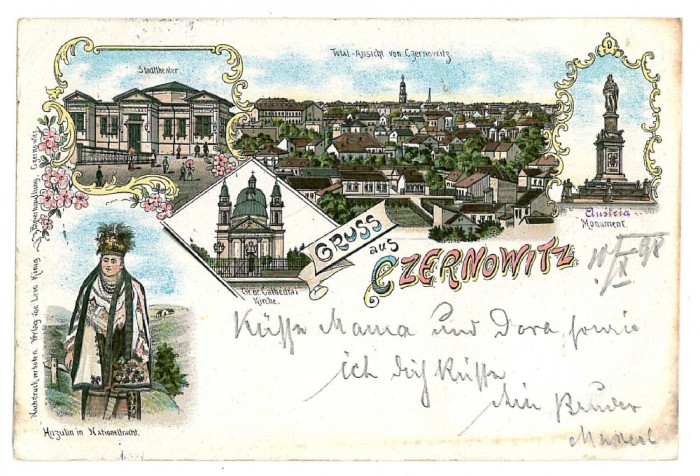 Stadttheater.
Total-Ansicht von Czernowitz
Gr. or. Cathedral
Kirche.
Gruss
aus
Czernowitz.
Austria
Monument.
Huzulin in Nationaltracht.
Nachdruck verboten. Verlag von Leon König, Papierhandlung, Czernowitz.
Küsse Mama und Dora, sowie
ich dich Küsse
dein Bruder